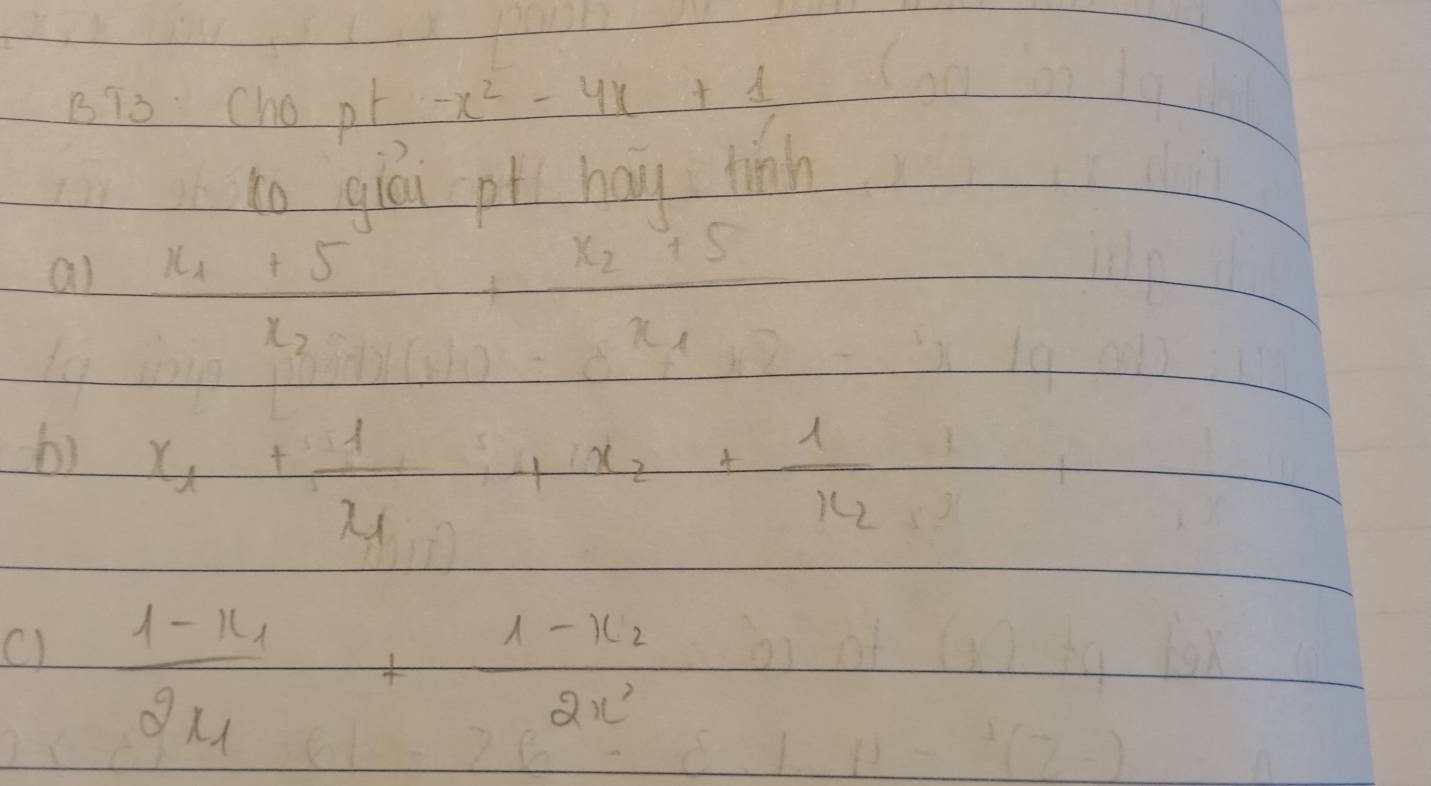 BT3: Cho pt -x² - 4x + 1
ko giải pt hãy tính
a) \frac{x₁ + 5}{x₂} + \frac{x₂ + 5}{x₁}
b) x₁ + \frac{1}{x₁} + x₂ + \frac{1}{x₂}
c) \frac{1 - x₁}{2x₁} + \frac{1 - x₂}{2x²}